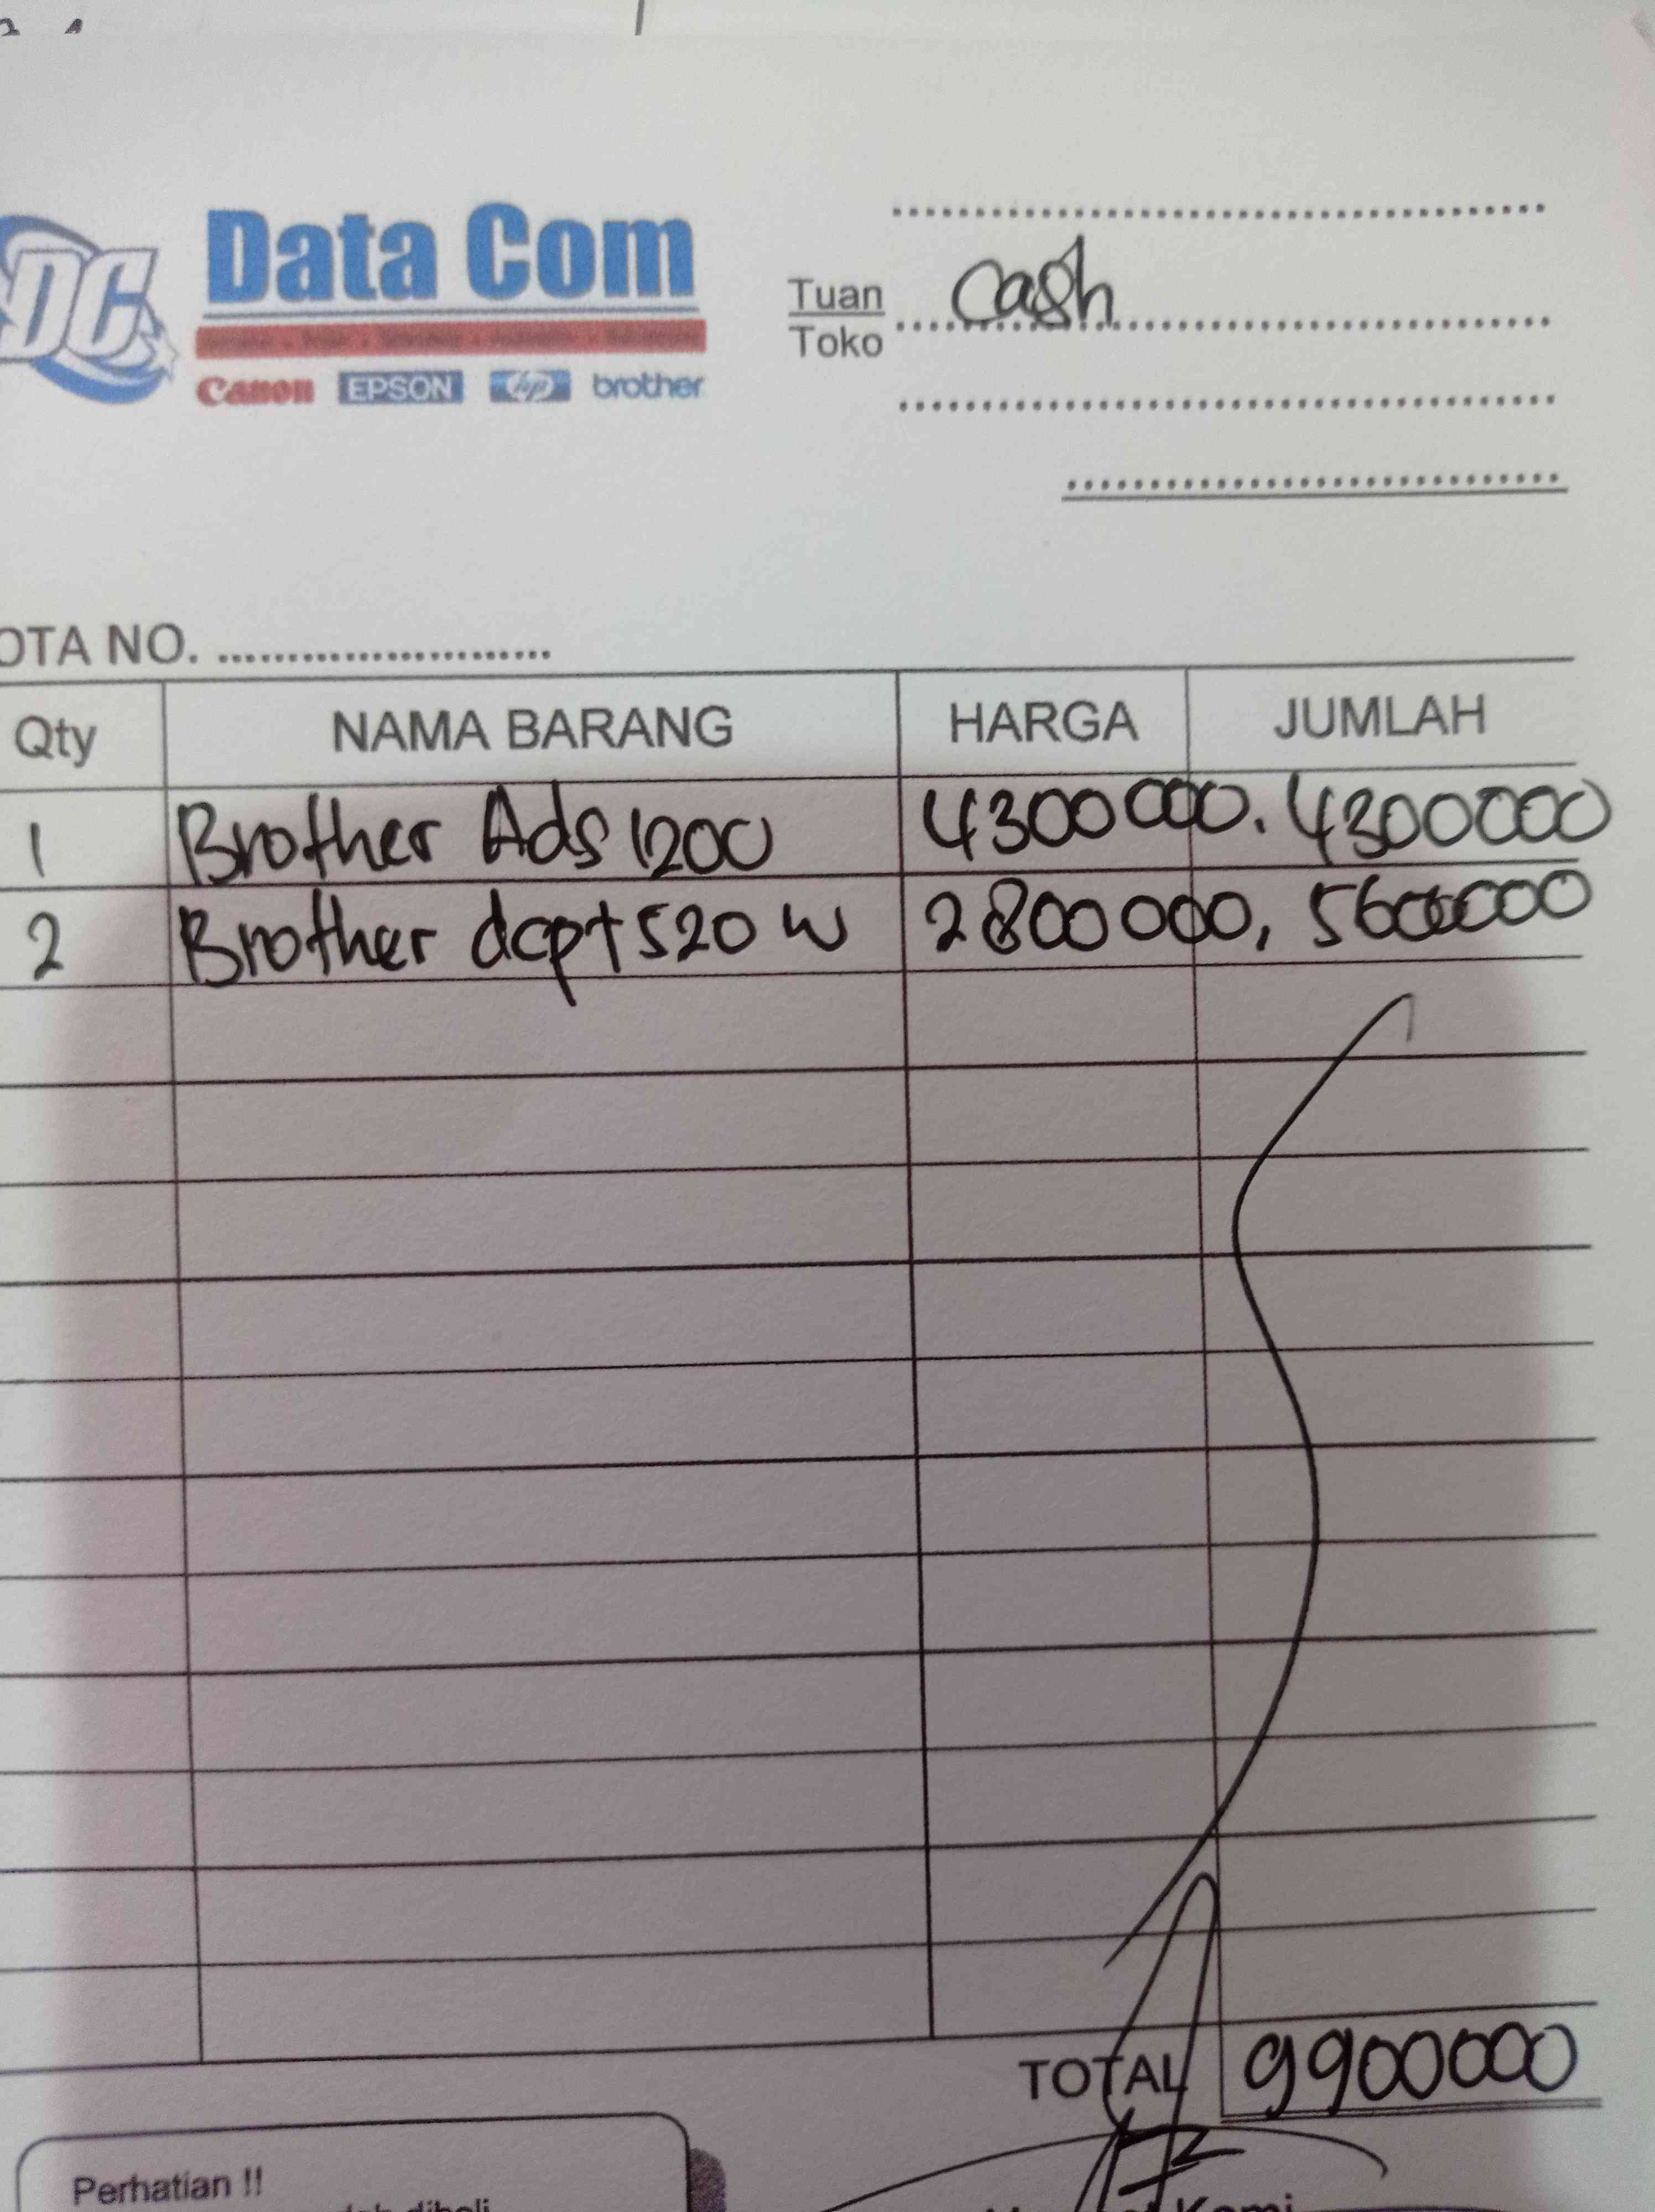 DC
Data Com
Canon EPSON hp brother
Tuan Cash
Toko
OTA NO.
Qty NAMA BARANG HARGA JUMLAH
1 Brother Ads 1200 4300000. 4300000
2 Brother dcpt 520 w 2800000, 5600000
TOTAL 9900000
Perhatian !!
dibeli
Kami